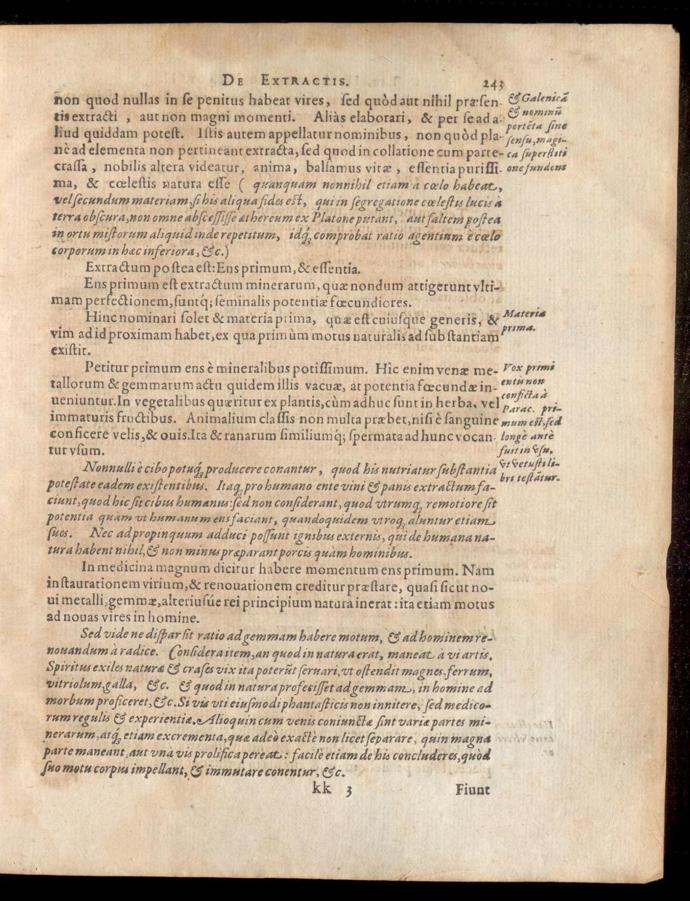 DE EXTRACTIS. 243
non quod nullas in se penitus habeat vires, sed quòd aut nihil præsen-
tis extracti, aut non magni momenti. Aliàs elaborari, & per se ad a-
liud quiddam potest. Istis autem appellatur nominibus, non quòd pla-
nè ad elementa non pertineant extracta, sed quod in collatione cum parte
crassa, nobilis altera videatur, anima, balsamus vitæ, essentia purissi-
ma, & cœlestis natura esse (quanquam nonnihil etiam à cœlo habeat,
vel secundum materiam, si his aliqua fides est, qui in segregatione cœlestis lucis à
terra obscura, non omne abscessisse æthereum ex Platone putant, aut saltem postea
in ortu mistorum aliquid inde repetitum, idq́, comprobat ratio agentium è cœlo
corporum in hæc inferiora, &c.)
& Galenicā
& nominū
portēta sine
sensu, magi-
ca superstiti
one fundens
Extractum postea est: Ens primum, & essentia.
Ens primum est extractum minerarum, quæ nondum attigerunt vlti-
mam perfectionem, suntq́; seminalis potentiæ fœcundiores.
Hinc nominari solet & materia prima, quæ est cuiusque generis, &
vim ad id proximam habet, ex qua primùm motus naturalis ad substantiam
existit.
Materia
prima.
Petitur primum ens è mineralibus potissimum. Hic enim venæ me-
tallorum & gemmarum actu quidem illis vacuæ, at potentia fœcundæ in-
ueniuntur. In vegetalibus quæritur ex plantis, cùm adhuc sunt in herba, vel
immaturis fructibus. Animalium classis non multa præbet, nisi è sanguine
conficere velis, & ouis. Ita & ranarum similiumq́; spermata ad hunc vocan-
tur vsum.
Vox primi
entis non
conficta à
Parac. pri-
mum est, sed
longè antè
fuit in vsu,
vt vetusti li-
bri testātur.
Nonnulli è cibo potuq́, producere conantur, quod his nutriatur substantia
potestate eadem existentibus. Itaq́, pro humano ente vini & panis extractum fa-
ciunt, quod hic sit cibus humanus: sed non considerant, quod vtrumq́, remotiore sit
potentia quàm vt humanum ens faciant, quandoquidem vtroq́, aluntur etiam
sues. Nec ad propinquum adduci possunt ignibus externis, qui de humana na-
tura habent nihil, & non minus præparant porcis quàm hominibus.
In medicina magnum dicitur habere momentum ens primum. Nam
instaurationem virium, & renouationem creditur præstare, quasi sicut no-
ui metalli, gemmæ, alteriusúe rei principium natura inerat: ita etiam motus
ad nouas vires in homine.
Sed vide ne dispar sit ratio ad gemmam habere motum, & ad hominem re-
nouandum à radice. Considera item, an quod in natura erat, maneat à vi artis.
Spiritus exiles naturæ & crases vix ita poterūt seruari, vt ostendit magnes, ferrum,
vitriolum, galla, &c. & quod in natura profecisset ad gemmam, in homine ad
morbum proficeret, &c. Si vis vti eiusmodi phantasticis non innitere, sed medico-
rum regulis & experientiæ. Alioquin cum venis coniunctæ sint variæ partes mi-
nerarum, atq́, etiam excrementa, quæ adeò exactè non licet separare, quin magna
parte maneant, aut vnà vis prolifica pereat: facilè etiam de his concluderes, quòd
suo motu corpus impellant, & immutare conentur, &c.
kk 3 Fiunt